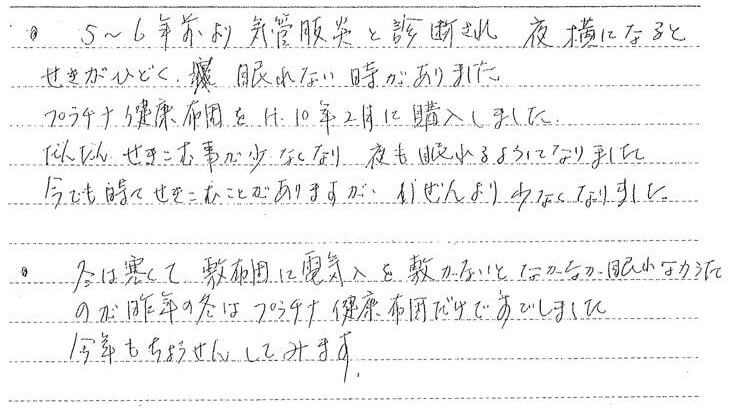 • 5～6年前より気管肢炎と診断され 夜横になると
せきがひどく、眠れない時がありました
プラチナ健康布団をH.10年2月に購入しました.
だんだんせきこむ事が少なくなり 夜も眠れるようになりました
今でも時々せきこむことがありますが、いぜんより少なくなりました。
• 冬は寒くて敷布団に電気を敷かないとなかなか眠れなかった
のが昨年の冬はプラチナ健康布団だけですごしました
今年もちょうせんしてみます.